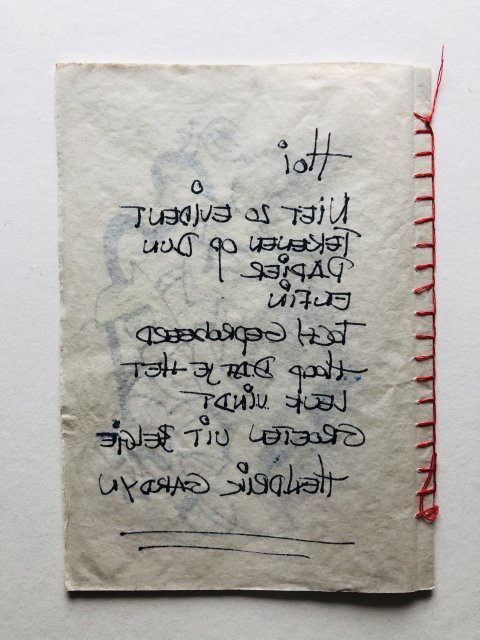 Hoi
Niet zo evident
Tekenen op Dun
Papier
Enfin
Toch Geprobeerd
Hoop Dat je Het
Leuk vindt
Groeten uit België
Hendrik Gardyn